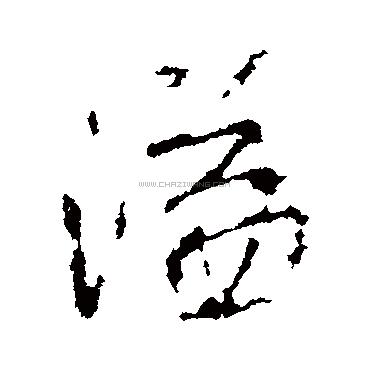 溢
WWW.CHAZIWANG.COM